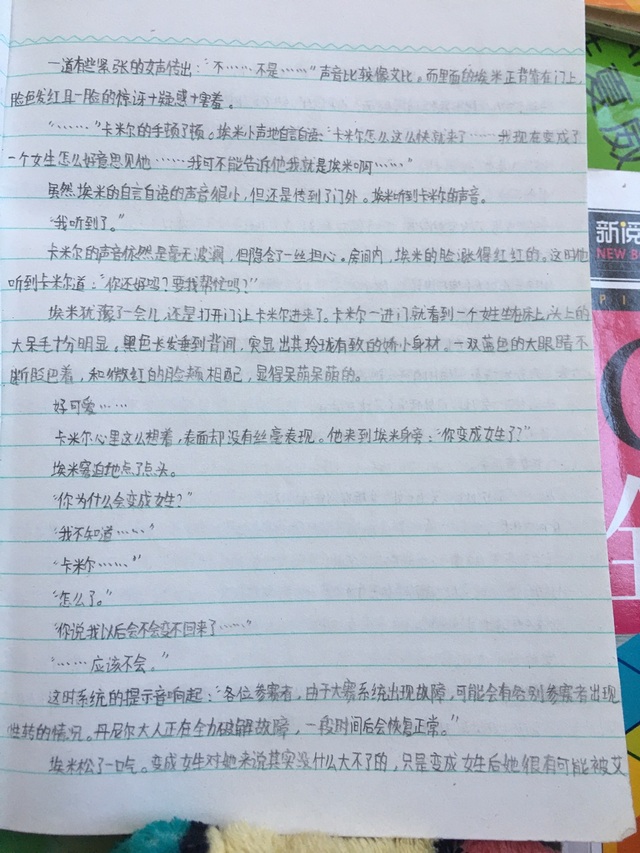 一道有些紧张的女声传出：“不……不是……”声音比较像艾比。而里面的埃米正背靠在门上，
脸色发红且一脸的惊讶+疑惑+害羞。
“……”卡米尔的手顿了顿。埃米小声地自言自语：“卡米尔怎么这么快就来了……我现在变成了
一个女生怎么好意思见他……我可不能告诉他我就是埃米啊……”
虽然埃米的自言自语的声音很小，但还是传到了门外。埃米听到卡米尔的声音。
“我听到了。”
卡米尔的声音依然是毫无波澜，但隐含了一丝担心。房间内，埃米的脸涨得红红的。这时她
听到卡米尔道：“你还好吗？要我帮忙吗？”
埃米犹豫了一会儿，还是打开门让卡米尔进来了。卡米尔一进门就看到一个女生坐在床上，头上的
大呆毛十分明显。黑色长发垂到背间，突显出其玲珑有致的娇小身材。一双蓝色的大眼睛不
断眨巴着，和微红的脸颊相配，显得呆萌呆萌的。
好可爱……
卡米尔心里这么想着，表面却没有丝毫表现。他来到埃米身旁：“你变成女生了？”
埃米窘迫地点了点头。
“你为什么会变成女生？”
“我不知道……”
“卡米尔……”
“怎么了。”
“你说我以后会不会变不回来了……”
“……应该不会。”
这时系统的提示音响起：“各位参赛者，由于大赛系统出现故障，可能会有个别参赛者出现
性转的情况。丹尼尔大人正在全力破解故障，一段时间后会恢复正常。”
埃米松了一口气。变成女生对她来说其实没什么大不了的，只是变成女生后她很有可能被艾
新阅
NEW B